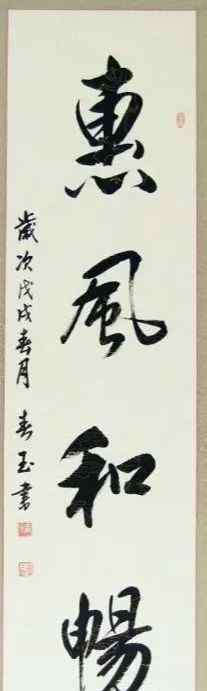 惠風和暢
歲次戊戌春月 春玉書